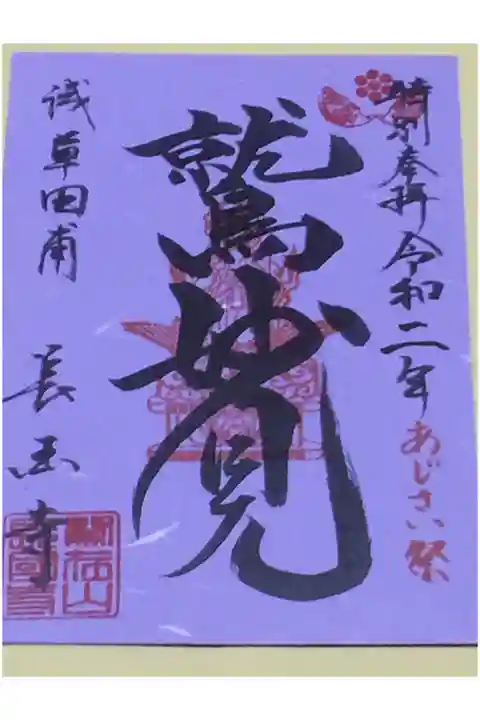 特別奉拝 令和二年 あじさい祭
鷲妙見
浅草田甫
長国寺